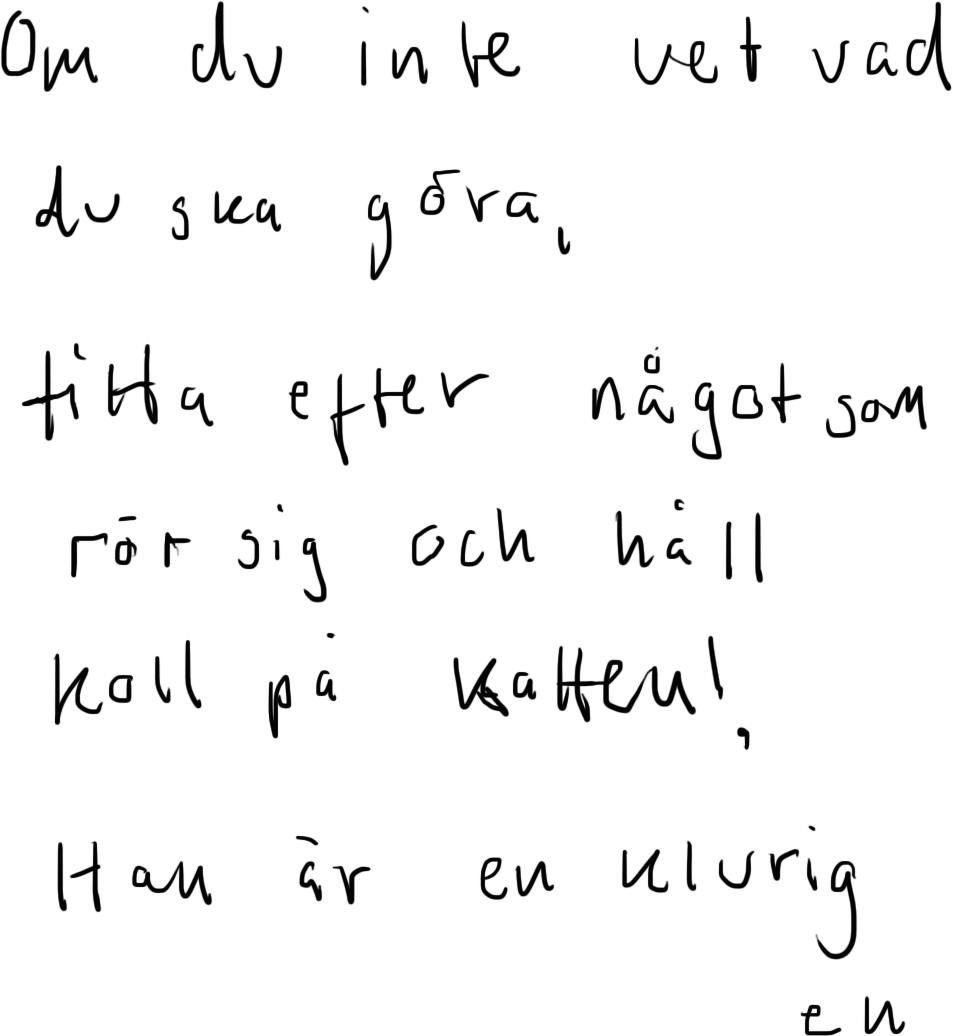 Om du inte vet vad
du ska göra,
titta efter något som
rör sig och håll
koll på katten!
Han är en klurig
en